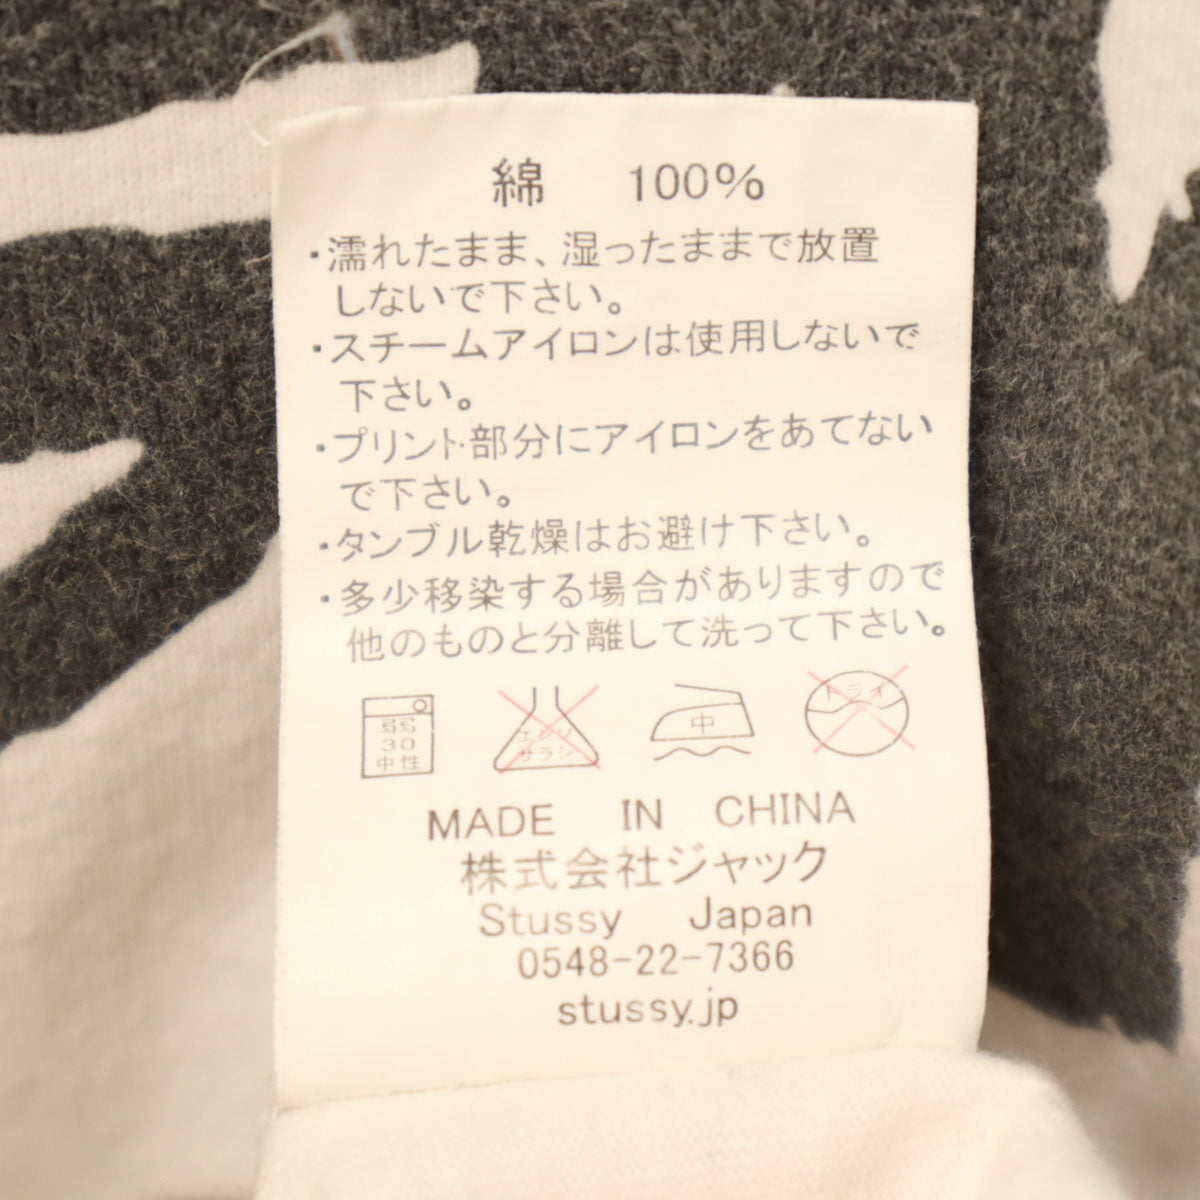 綿 100%
・濡れたまま、湿ったままで放置
しないで下さい。
・スチームアイロンは使用しないで
下さい。
・プリント部分にアイロンをあてない
で下さい。
・タンブル乾燥はお避け下さい。
・多少移染する場合がありますので
他のものと分離して洗って下さい。
弱
30
中性
エンソ
サラシ
中
ドライ
MADE IN CHINA
株式会社ジャック
Stussy Japan
0548-22-7366
stussy.jp